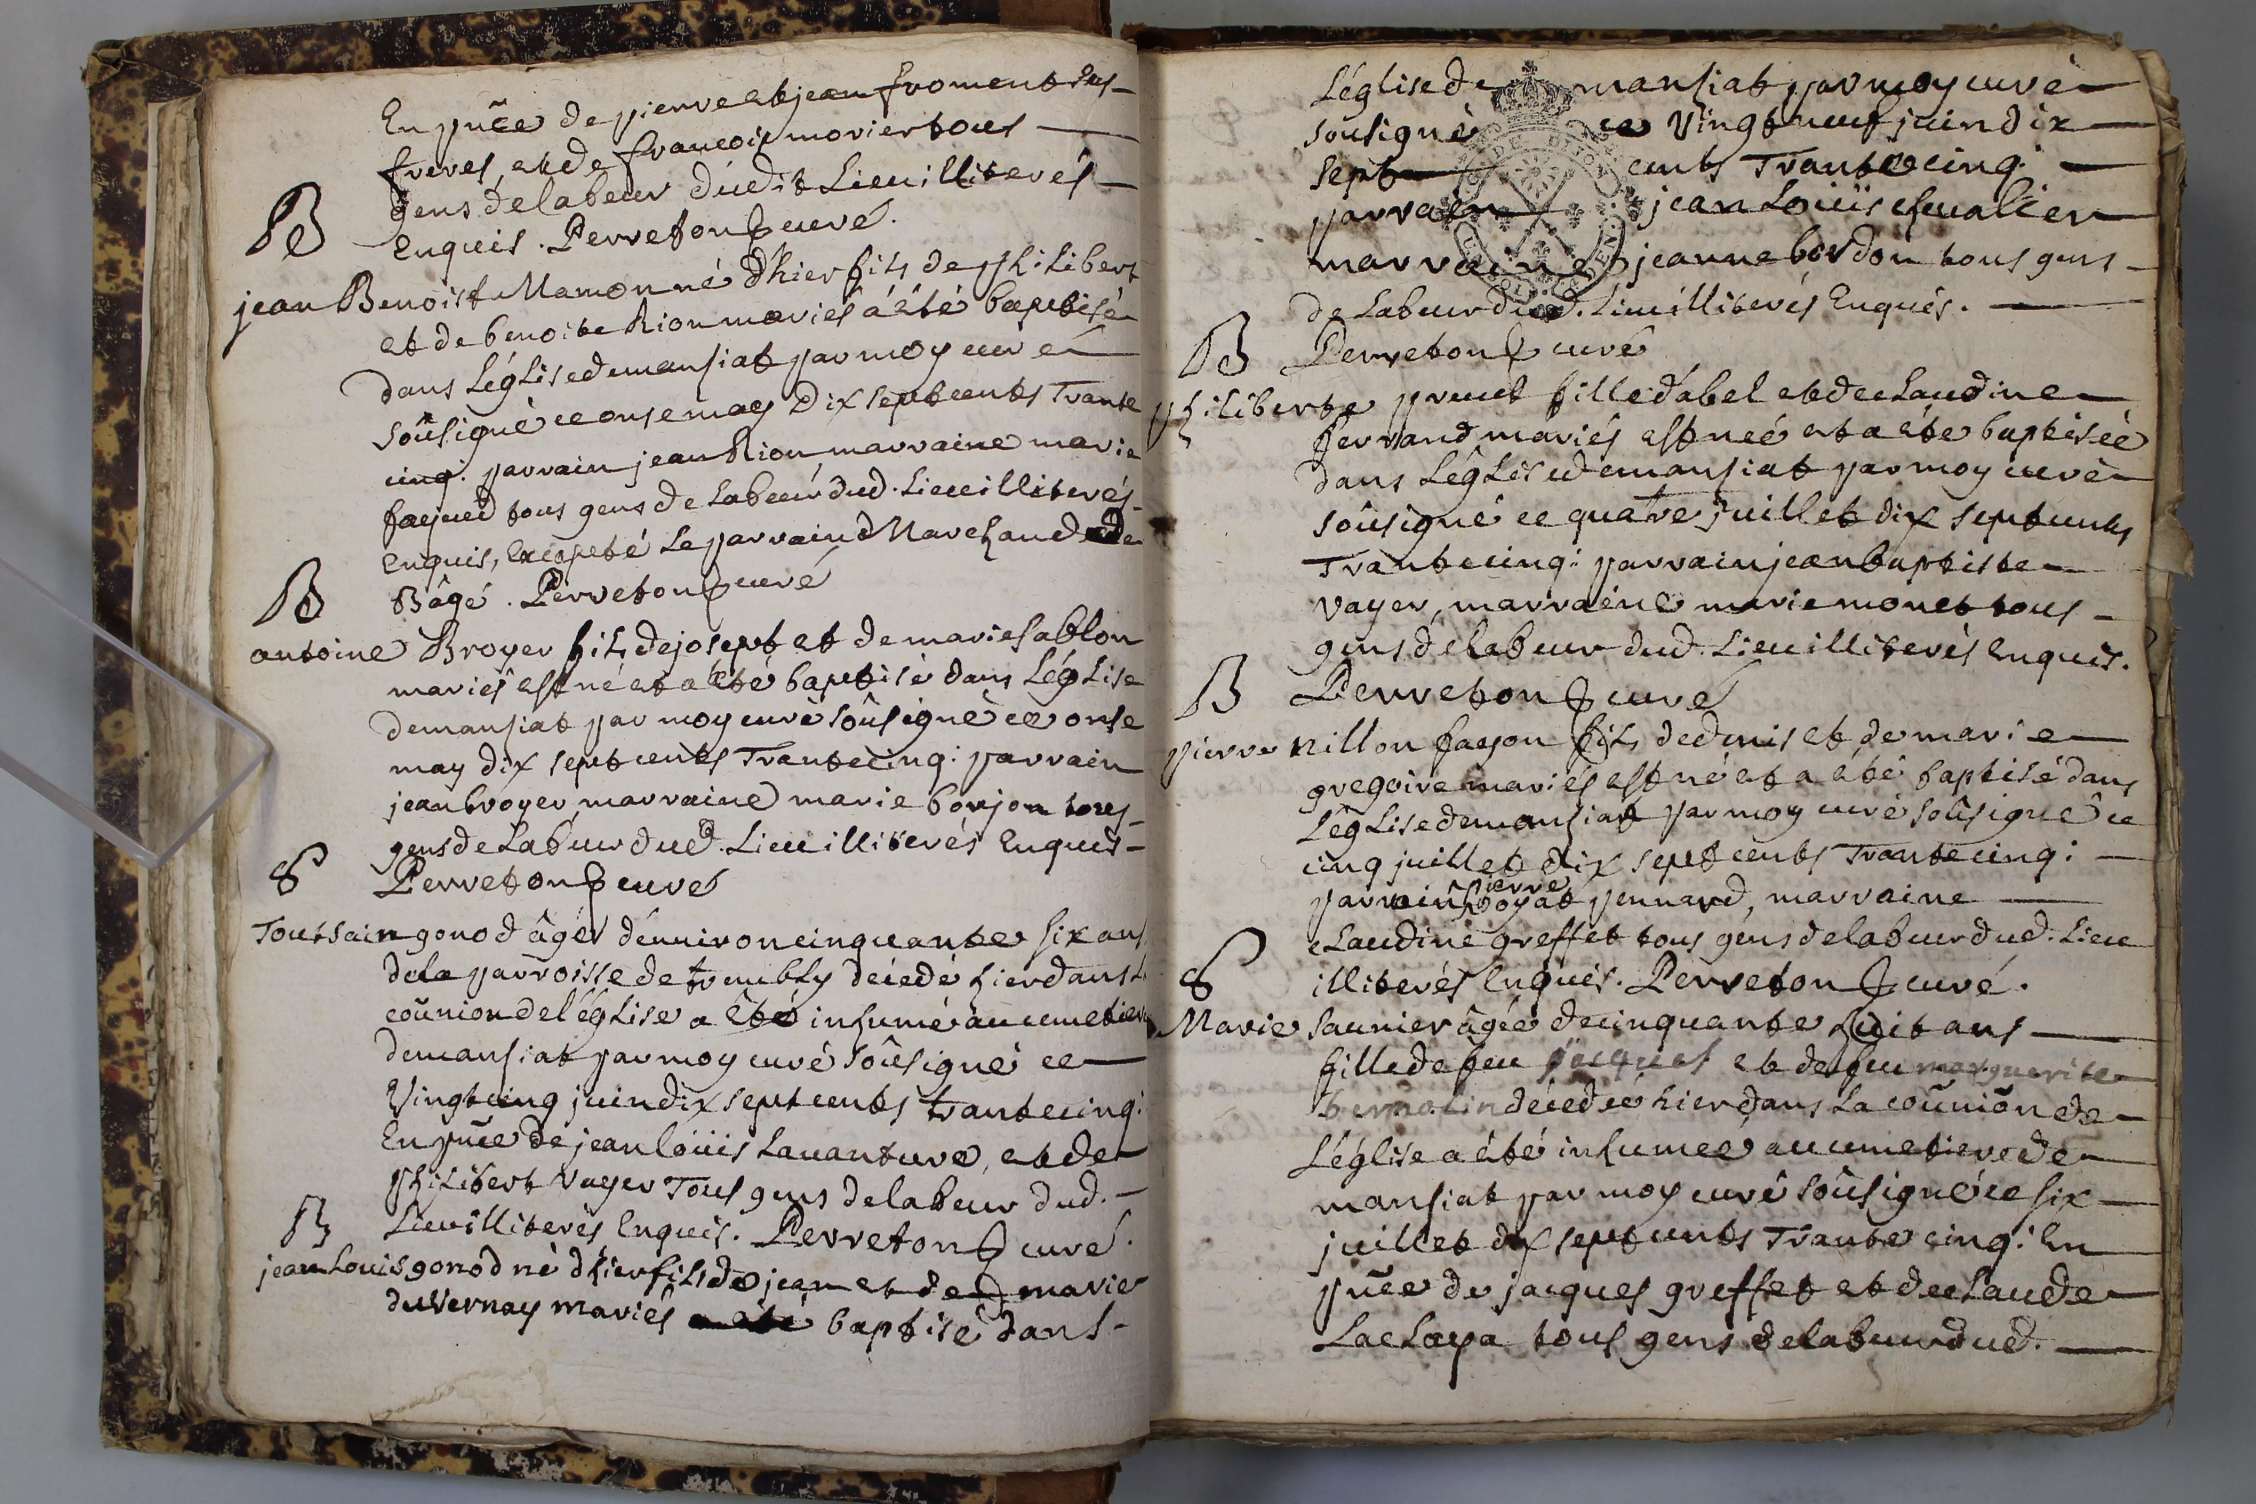 En pñce de pierre et jean froment ses
freres, et de francois morier tous
gens de labeur dudit Lieu illiterés
Enquis. Perreton curé.
B
jean Benoist Mamon né d'hier fils de philibert
et de benoite Rion mariés á été baptisé
dans Léglise de mansiat par moy curé
soûsigné ce onse may Dix sept cents Trante
cinq. parrain jean Rion marraine marie
fayied tous gens de Labeur dud. Lieu illiterés
Enquis, Excepté Le parrain Marchand de
Bâgé. Perreton curé
B
antoine Broyer fils de josept et de marie sablon
mariés est né et a été baptisé dans Léglise
de mansiat par moy curé soûsigné ce onse
may dix sept cents Trante cinq. parrain
jean broyer, marraine marie borjon tous
gens de Labeur dud. Lieu illiterés Enquis
Perreton curé
S
Toutsain gonod âgé d'environ cinquante six ans
de la parroisse de trembly décedé hier dans La
coũnion de l'église a été inhumé au cimetiere
de mansiat par moy curé soûsigné ce
Vingt cinq juin dix sept cents trante cinq.
En pñce de jean loüis Lavanture, et de
philibert vayer Tous gens de labeur dud.
Lieu illiterés Enquis. Perreton curé.
B
jean Louis gonod né d'hier fils de jean et de marie
du Vernay mariés a été baptisé dans
Léglise de mansiat par moy curé
sousigné ce Vingt neuf juin dix
sept cents Trante cinq.
parrain jean Loüis chevalier
marraine jeanne bordon tous gens
de Labeur dud. Lieu illiterés Enquis.
Perreton curé
B
philiberte prevet fille d'abel et de claudine
ferrand mariés est neé et a éte baptiseé
dans Léglise de mansiat par moy curé
soûsigné ce quatre juillet dix sept cents
Trante cinq. parrain jean baptiste
vayer, marraine marie monet tous
gens de labeur dud. Lieu illiterés Enquis.
Perreton curé
B
pierre nillon fayon fils de denis et de marie
gregoire mariés est né et a été baptisé dans
Léglise de mansiat par moy curé soûsigné ce
cinq juillet dix sept cents Trante cinq.
pierre
parrain Boyat pennard, marraine
claudine greffet tous gens de labeur dud. Lieu
illiterés Enquis. Perreton curé.
S
Marie saunier âgée de cinquante huit ans
fille de feu jacques et de feu marguerite
bernolin décedeé hier dans La coũniõn de
Léglise a été inhumeé au cimetiere de
mansiat par moy curé soûsigné ce six
juillet dix sept cents Trante cinq. En
pñce de jacques greffet et de claude
Laclaya tous gens de labeur dud.